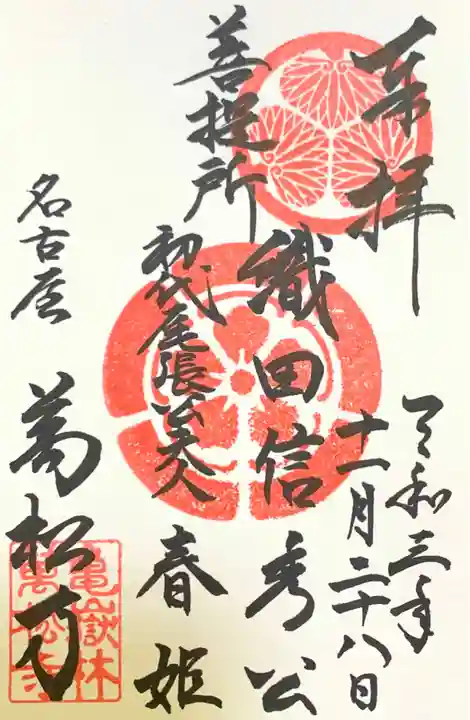 奉拝
令和三年
十一月二十八日
菩提所
織田信秀公
初代尾張公夫人
春姫
名古屋
萬松寺
亀嶽林
萬松寺